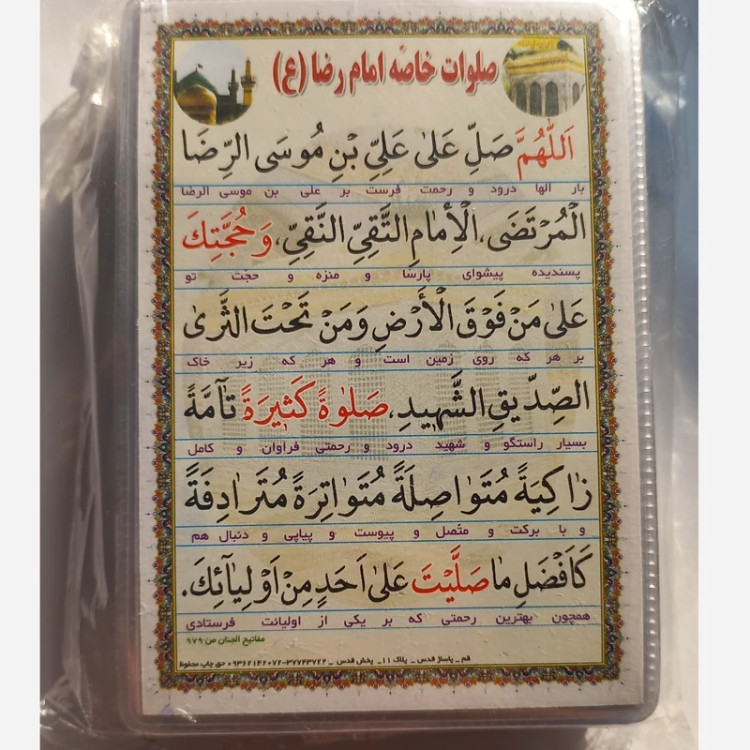 صلوات خاصه امام رضا (ع)
اَللّٰهُمَّ صَلِّ عَلىٰ عَلِيِّ بْنِ مُوسَى الرِّضَا
بار الها درود و رحمت فرست بر علی بن موسی الرضا
الْمُرْتَضَى، الْاِمٰامِ التَّقِيِّ النَّقِيِّ، وَ حُجَّتِكَ
پسندیده پیشوای پارسا و منزه و حجّت تو
عَلىٰ مَنْ فَوْقَ الْأَرْضِ وَ مَنْ تَحْتَ الثَّرىٰ
بر هر که روی زمین است و هر که زیر خاک
الصِّدّيقِ الشَّهيدِ، صَلٰوةً كَثيرَةً تٰآمَّةً
بسیار راستگو و شهید درود و رحمتی فراوان و کامل
زٰاكِيَةً مُتَوٰاصِلَةً مُتَوٰاتِرَةً مُتَرٰادِفَةً
و با برکت و متّصل و پیوست و پیاپی و دنبال هم
كَاَفْضَلِ مٰا صَلَّيْتَ عَلىٰ اَحَدٍ مِنْ اَوْلِيٰآئِكَ.
همچون بهترین رحمتی که بر یکی از اولیائت فرستادی
مفاتیح الجنان ص ۹۷۹
قم _ پاساژ قدس _ پلاک ۱۱_ پخش قدس _ ۳۷۷۴۳۷۲۲-۰۹۳۶۲۱۴۲۰۷۲ حق چاپ محفوظ